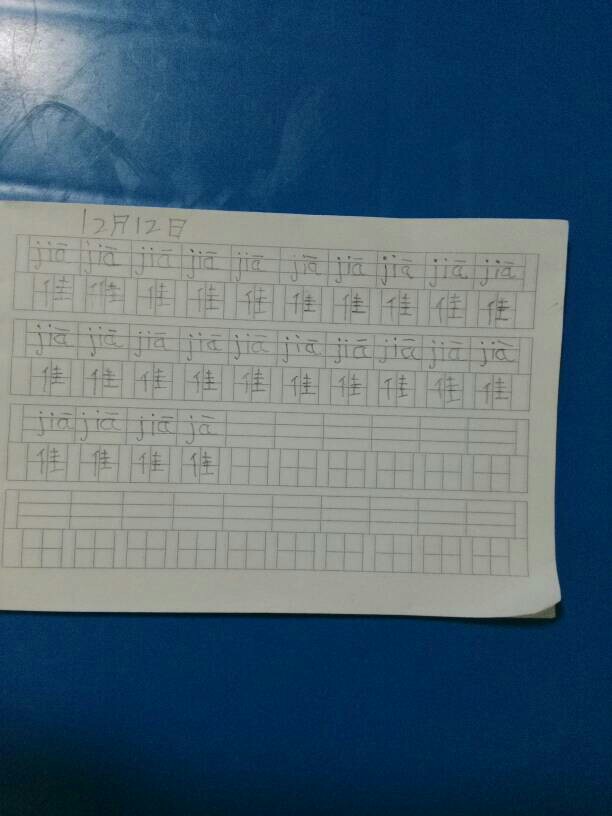 12月12日
jiā jiā jiā jiā jiā jiā jiā jiā jiā jiā
佳 佳 佳 佳 佳 佳 佳 佳 佳 佳
jiā jiā jiā jiā jiā jiā jiā jiā jiā jiā
佳 佳 佳 佳 佳 佳 佳 佳 佳 佳
jiā jiā jiā jā
佳 佳 佳 佳